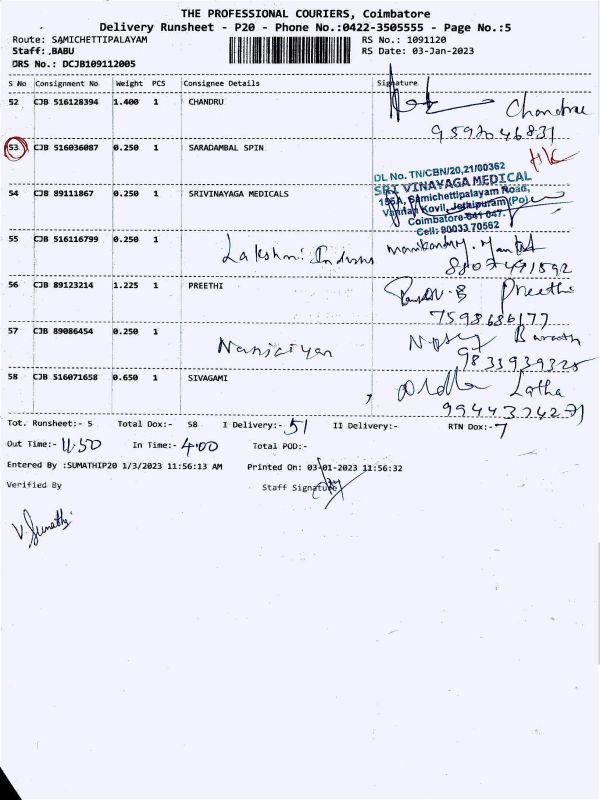 THE PROFESSIONAL COURIERS, Coimbatore
Delivery Runsheet - P20 - Phone No.:0422-3505555 - Page No.:5
Route: SAMICHETTIPALAYAM RS No.: 1091120
Staff:.BABU RS Date: 03-Jan-2023
DRS No.: DCJB109112005
S No Consignment No Weight PCS Consignee Details Signature
52 CJB 516128394 1.400 1 CHANDRU Chandru
9597046831
53 CJB 516036087 0.250 1 SARADAMBAL SPIN HK
DL No. TN/CBN/20,21/00362
SRI VINAYAGA MEDICAL
54 CJB 89111867 0.250 1 SRIVINAYAGA MEDICALS 156A, Samichettipalayam Road,
Vannan Kovil, Jothipuram (Po)
Coimbatore 641 047.
Cell: 90033 70562
55 CJB 516116799 0.250 1 Lakshmi Indus
8807491592
56 CJB 89123214 1.225 1 PREETHI Preethi
7598686177
57 CJB 89086454 0.250 1 Nanjaiyan Barath
9833939328
58 CJB 516071658 0.650 1 SIVAGAMI Latha
9944374271
Tot. Runsheet:- 5 Total Dox:- 58 I Delivery:- 51 II Delivery:- RTN Dox:- 7
Out Time:- 11.50 In Time:- 4.00 Total POD:-
Entered By :SUMATHIP20 1/3/2023 11:56:13 AM Printed On: 03-01-2023 11:56:32
Verified By Staff Signature
V. Sumathi